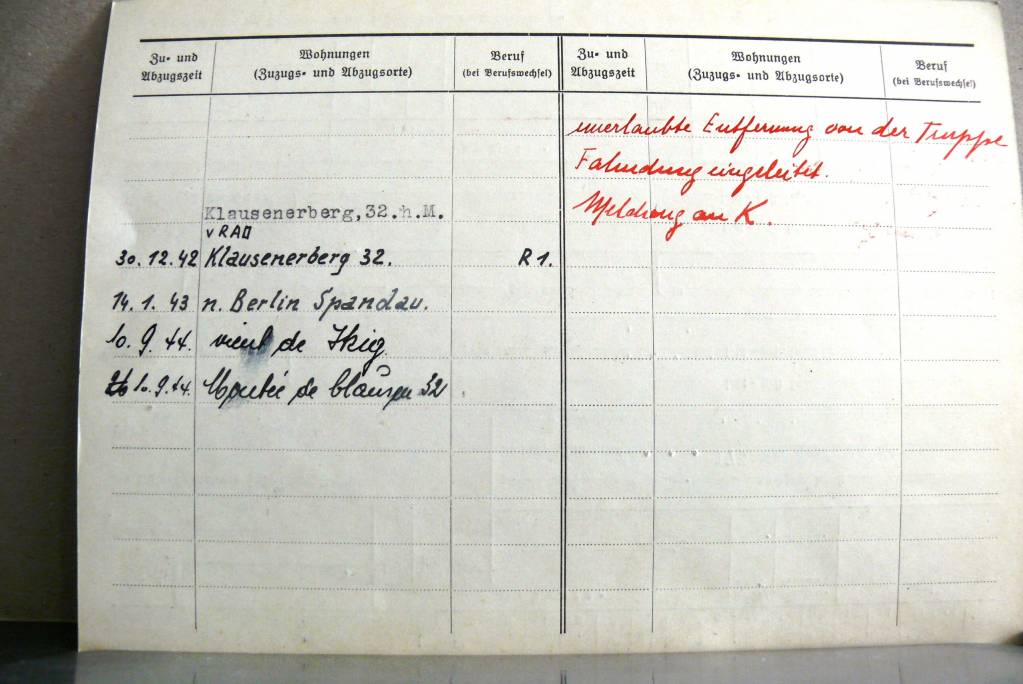 Zu- und Abzugszeit
Wohnungen
(Zuzugs- und Abzugsorte)
Beruf
(bei Berufswechsel)
Zu- und Abzugszeit
Wohnungen
(Zuzugs- und Abzugsorte)
Beruf
(bei Berufswechsel)
Klausenerberg,32.h.M.
v RAD
30.12.42 Klausenerberg 32. R1.
14.1.43 n. Berlin Spandau.
10.9.44. vient de
10.9.44. Montée de Clausen 32
unerlaubte Entfernung von der Truppe
Fahndung eingeleitet.
Meldung an K.